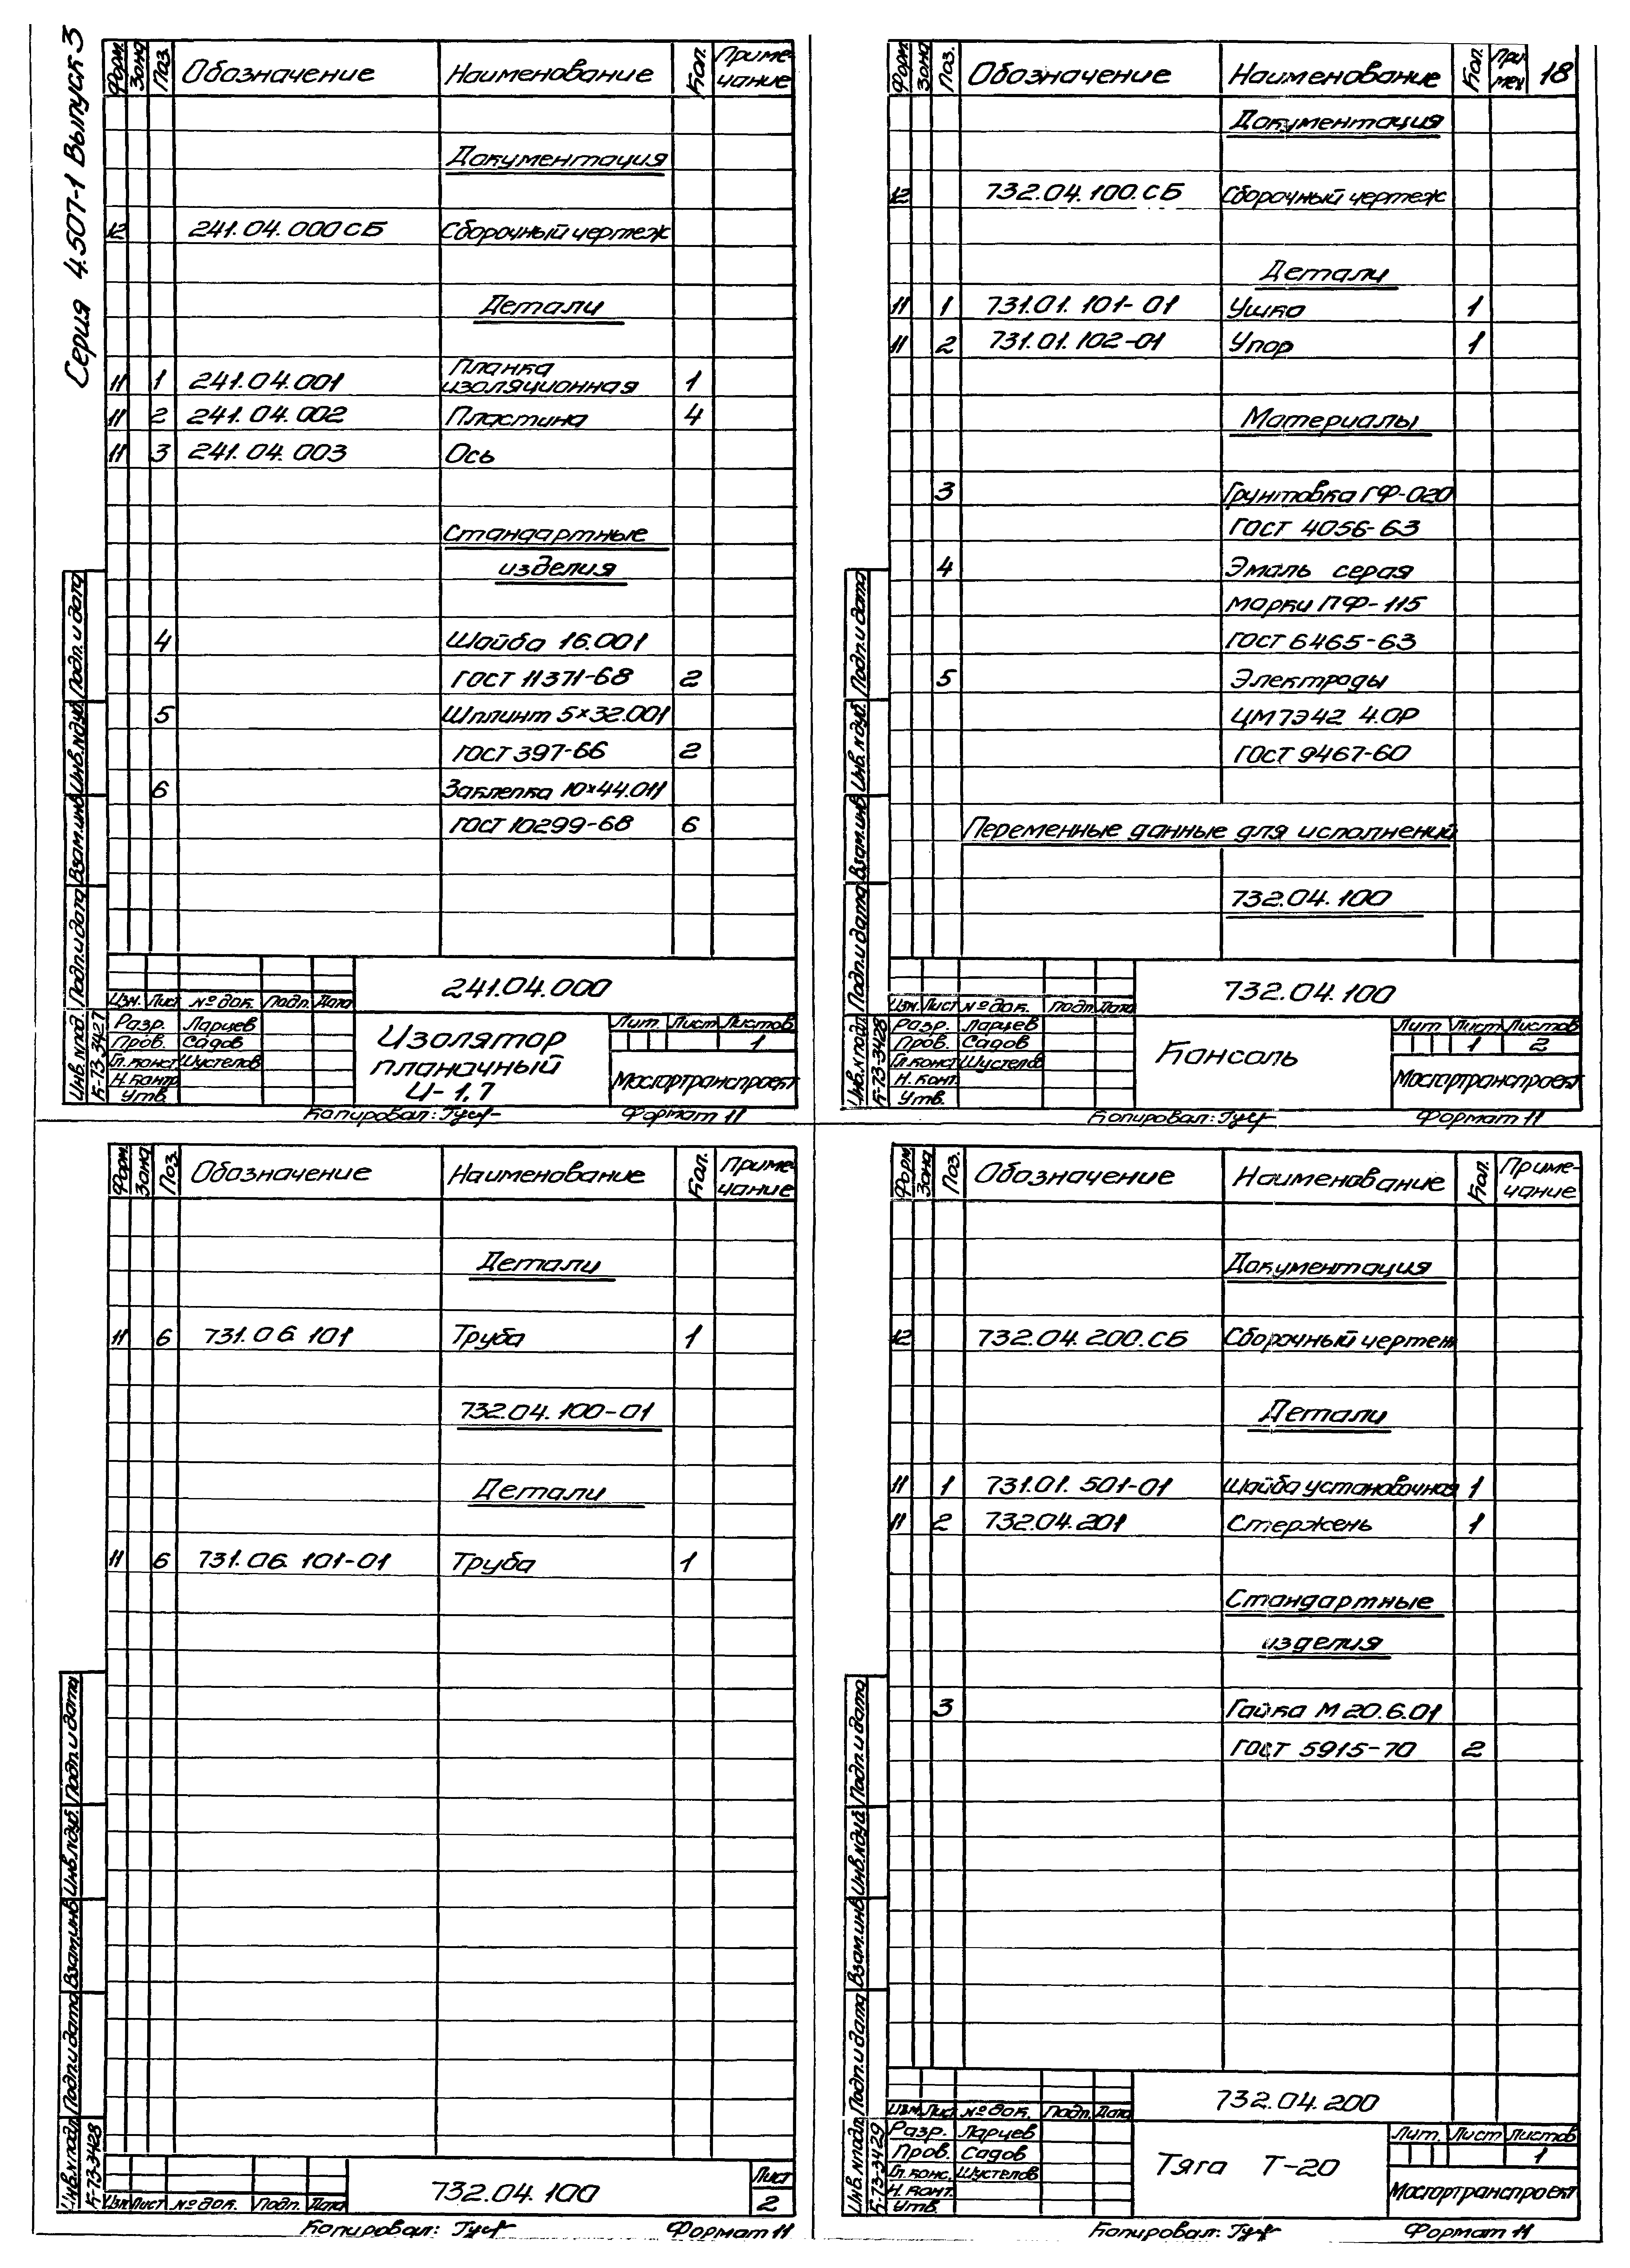 Серия 4.507-1 Выпуск 3
Форм. Зона Поз. Обозначение Наименование Кол. Приме-
чание
Документация
12 241.04.000СБ Сборочный чертеж
Детали
11 1 241.04.001 Планка
изоляционная 1
11 2 241.04.002 Пластина 4
11 3 241.04.003 Ось
Стандартные
изделия
4 Шайба 16.001
ГОСТ 11371-68 2
5 Шплинт 5×32.001
ГОСТ 397-66 2
6 Заклепка 10×44.011
ГОСТ 10299-68 6
Инв.№подл. Подп.и дата Взам.инв Инв.№дуб. Подп.и дата
К-73-3427
241.04.000
Изм. Лист № док. Подп. Дата
Разр. Ларцев
Пров. Садов
Гл.конст Шустелов
Н.контр
Утв.
Изолятор
планочный
И-1,7
Лит. Лист Листов
1
Мосгортранспроект
Копировал: Формат 11
Форм. Зона Поз. Обозначение Наименование Кол. При-
меч 18
Документация
12 732.04.100.СБ Сборочный чертеж
Детали
11 1 731.01.101-01 Ушко 1
11 2 731.01.102-01 Упор 1
Материалы
3 Грунтовка ГФ-020
ГОСТ 4056-63
4 Эмаль серая
марки ПФ-115
ГОСТ 6465-63
5 Электроды
ЦМ7Э42 4.0Р
ГОСТ 9467-60
Переменные данные для исполнений
732.04.100
Инв.№подл. Подп.и дата Взам.инв Инв.№дуб. Подп.и дата
К-73-3428
732.04.100
Изм. Лист № док. Подп. Дата
Разр. Ларцев
Пров. Садов
Гл.конст Шустелов
Н.конт.
Утв.
Консоль
Лит Лист Листов
1 2
Мосгортранспроект
Копировал: Формат 11
Форм. Зона Поз. Обозначение Наименование Кол. Приме-
чание
Детали
11 6 731.06.101 Труба 1
732.04.100-01
Детали
11 6 731.06.101-01 Труба 1
Инв.№подл. Подп.и дата Взам.инв Инв.№дуб. Подп.и дата
К-73-3428
Изм Лист № док. Подп. Дата
732.04.100
Лист
2
Копировал: Формат 11
Форм. Зона Поз. Обозначение Наименование Кол. Приме-
чание
Документация
12 732.04.200.СБ Сборочный чертеж
Детали
11 1 731.01.501-01 Шайба установочная 1
11 2 732.04.201 Стержень 1
Стандартные
изделия
3 Гайка М20.6.01
ГОСТ 5915-70 2
Инв.№подл. Подп.и дата Взам.инв Инв.№дуб Подп.и дата
К-73-3429
732.04.200
Изм. Лист № док. Подп. Дата
Разр. Ларцев
Пров. Садов
Гл.конс. Шустелов
Н.конт.
Утв.
Тяга Т-20
Лит. Лист Листов
1
Мосгортранспроект
Копировал: Формат 11